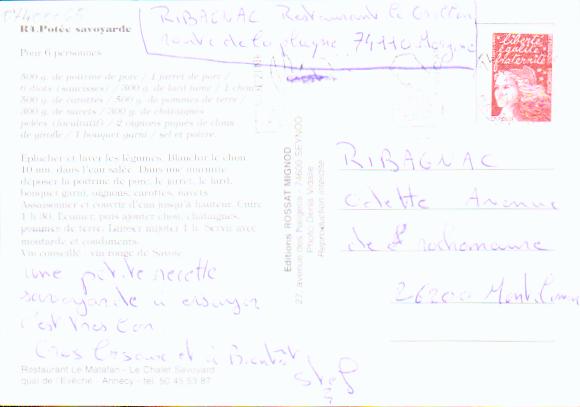 RIBAGNAC Restaurant le Crillon
route de la plagne 74110 Morzine
R4.Potée savoyarde
Pour 6 personnes
800 g. de poitrine de porc / 1 jarret de porc /
6 diots (saucisses) / 300 g. de lard fumé / 1 chou
300 g. de carottes / 500 g. de pommes de terre /
300 g. de navets / 300 g. de châtaignes
pelées (facultatif) / 2 oignons piqués de clous
de girofle / 1 bouquet garni / sel et poivre.
Eplucher et laver les légumes. Blanchir le chou
10 mn. dans l'eau salée. Dans une marmite
déposer la poitrine de porc, le jarret, le lard,
bouquet garni, oignons, carottes, navets.
Assaisonner et couvrir d'eau jusqu'à hauteur. Cuire
1 h 30. Ecumer, puis ajouter chou, châtaignes,
pommes de terre. Laisser mijoter 1 h. Servir avec
moutarde et condiments.
Vin conseillé : vin rouge de Savoie
une petite recette
savoyarde a essayer
c'est tres bon
Gros Bisous et à Bientôt
Stef
Restaurant Le Matafan - Le Chalet Savoyard
quai de l'Evêché - Annecy - tél. 50 45 53 87
Editions ROSSAT MIGNOD
27, avenue des Neigeos - 74600 SEYNOD
Photo Denis Vidalie
Reproduction interdite
liberté
égalité
fraternité
RIBAGNAC
Odette Avenue
de Rochemaure
26200 Montélimar